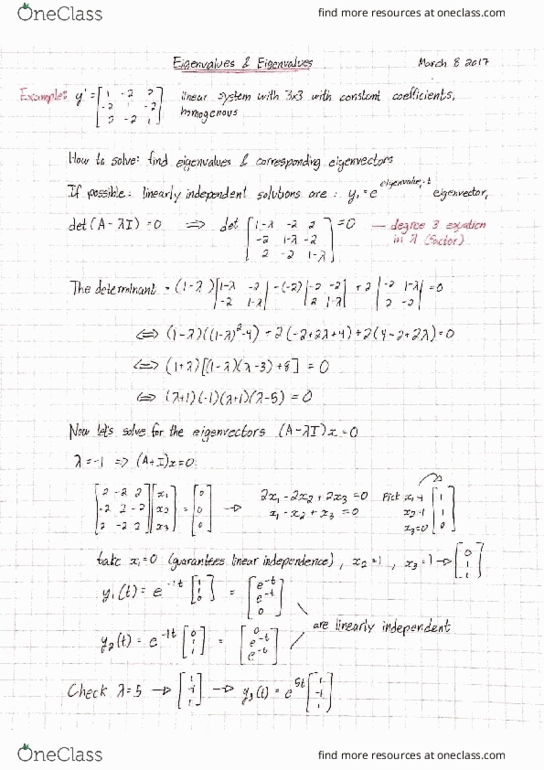 OneClass find more resources at oneclass.com
Eigenvalues & Eigenvalues March 8 2017
Example: y' = [1 -2 2; -2 1 -2; 2 -2 1] linear system with 3x3 with constant coefficients,
homogenous
How to solve: find eigenvalues & corresponding eigenvectors
If possible: linearly independent solutions are: y₁ = e^(eigenvalue₁·t) eigenvector₁
det(A-λI)=0 ⇒ det [1-λ -2 2; -2 1-λ -2; 2 -2 1-λ] = 0 — degree 3 equation
in λ (factor)
The determinant = (1-λ)|1-λ -2; -2 1-λ| -(-2)|-2 -2; 2 1-λ| + 2|-2 1-λ; 2 -2| = 0
⇔ (1-λ)((1-λ)²-4) + 2(-2+2λ+4) + 2(4-2+2λ) = 0
⇔ (1+λ)[(1-λ)(λ-3)+8] = 0
⇔ (λ+1)(-1)(λ+1)(λ-5) = 0
Now let's solve for the eigenvectors (A-λI)x=0
λ=-1 ⇒ (A+I)x=0:
[2 -2 2; -2 2 -2; 2 -2 2][x₁; x₂; x₃] = [0; 0; 0] → 2x₁-2x₂+2x₃=0 Pick x₁=1 [1; 1; 0]
x₁-x₂+x₃=0 x₂=1
x₃=0
take x₁=0 (guarantees linear independence), x₂=1, x₃=1 → [0; 1; 1]
y₁(t) = e^(-1t) [1; 1; 0] = [e^-t; e^-t; 0]
are linearly independent
y₂(t) = e^(-1t) [0; 1; 1] = [0; e^-t; e^-t]
Check λ=5 → [1; -1; 1] → y₃(t) = e^(5t) [1; -1; 1]
OneClass find more resources at oneclass.com